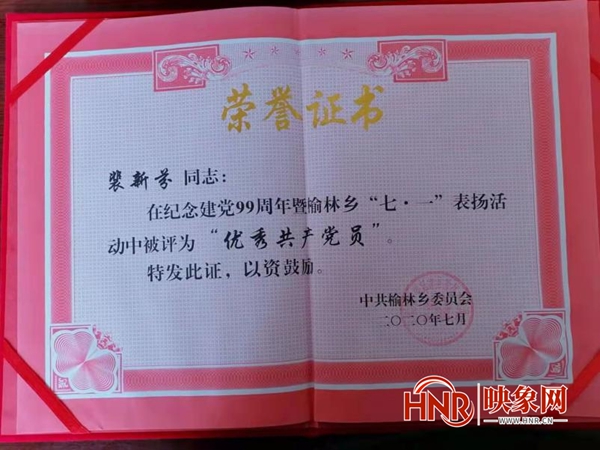 荣誉证书
裴新芬 同志：
在纪念建党99周年暨榆林乡“七·一”表扬活
动中被评为“优秀共产党员”。
特发此证，以资鼓励。
中共榆林乡委员会
二〇二〇年七月
HNR 映象网
WWW.HNR.CN